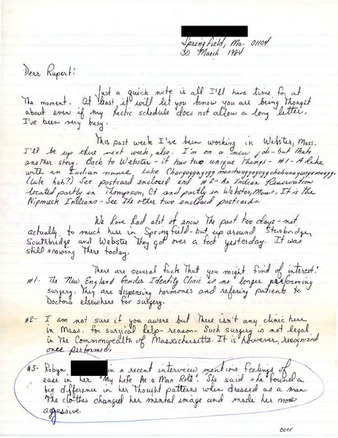 Springfield, Ma. 01104
30 March 1984
Dear Rupert:
Just a quick note is all I'll have time for at
the moment. At least it will let you know you are being thought
about even if my hectic schedule does not allow a long letter.
I've been very busy.
This past week I've been working in Webster, Mass.
I'll be up there next week, also. I'm on a snow job - but thats
another story. Back to Webster - it has two unique things - #1 - A lake
with an Indian name, Lake
(cute huh?) See postcard enclosed and #2 - An Indian Reservation
located partly in Thompson, Ct and partly in Webster, Mass. It is the
Nipmuck Indians - See the other two enclosed postcards.
We have had alot of snow the past two days - not
actually, to much here in Springfield - but up around Sturbridge,
Southbridge and Webster they got over a foot yesterday. It was
still snowing there today.
There are several facts that you might find of interest:
#1. The New England Gender Identity Clinic is no longer performing
surgery. They are dispensing hormones and refering patients to
Doctors elsewhere for surgery.
#2 - I am not sure if you aware but there isn't any clinic here
in Mass. for surgical help - reason - Such surgery is not legal
in the Commonwealth of Massachusetts. It is, however, recognised
once performed.
#3 - Robyn in a recent interview mentions feelings of
ease in her "My Life As a Man Role". She said she found a
big difference in her thought patterns when dressed as a man.
The clothes changed her mental image and made her more
aggresive.
over